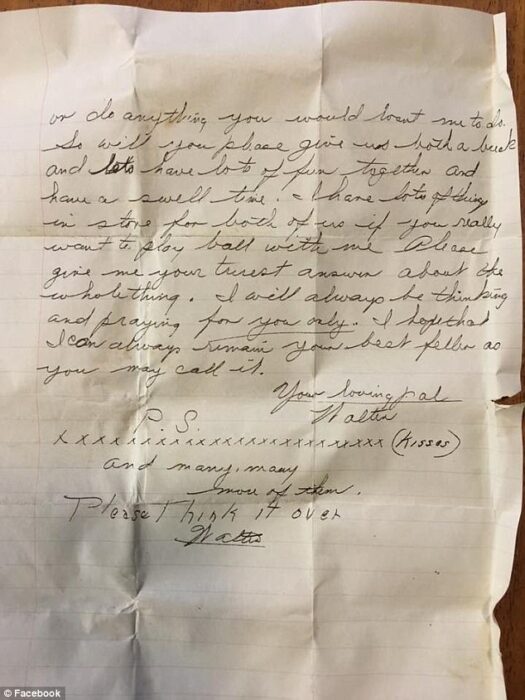 or do anything you would want me to do.
So will you please give us both a break
and lets have lots of fun together and
have a swell time. I have lots of things
in store for both of us if you really
want to play ball with me Please
give me your truest answer about the
whole thing. I will always be thinking
and praying for you only. I hope that
I can always remain your best feller as
you may call it.
Your loving pal
Walter
P.S.
xxxxxxxxxxxxxxxxxxxxxxxxx (Kisses)
and many, many
more of them.
Please Think it over
Walter
© Facebook